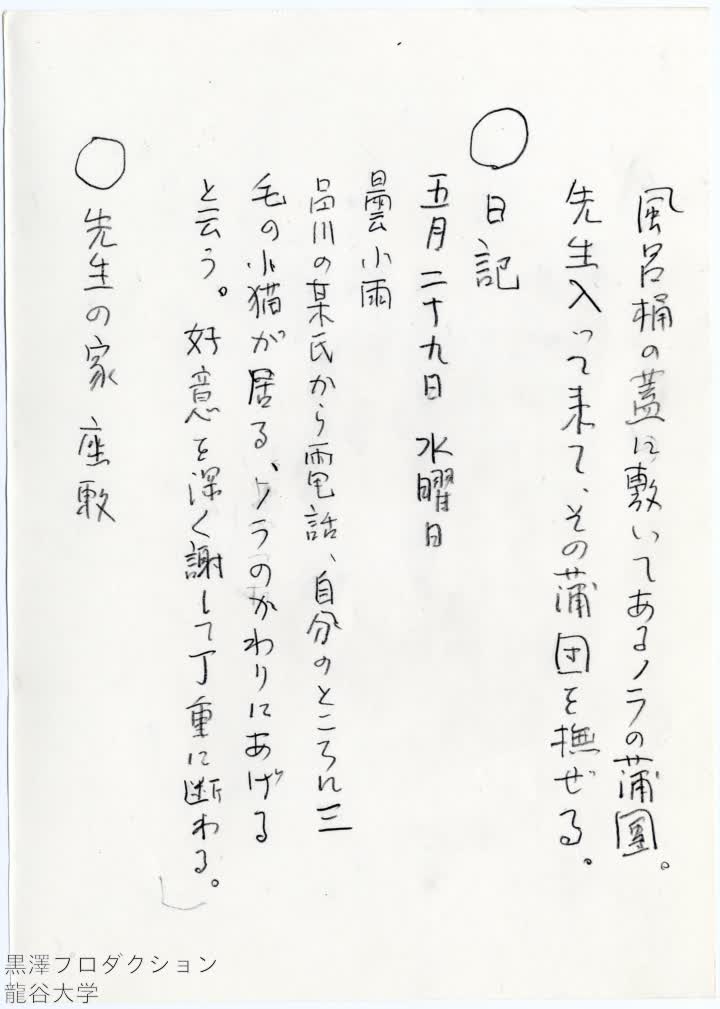 風呂桶の蓋に敷いてあるノラの蒲團。
先生入って来て、その蒲団を撫ぜる。
○日記
五月二十九日 水曜日
曇小雨
品川の某氏から電話、自分のところに三
毛の小猫が居る、ノラのかわりにあげる
と云う。好意を深く謝して丁重に断わる。
○先生の家 座敷
黒澤プロダクション
龍谷大学